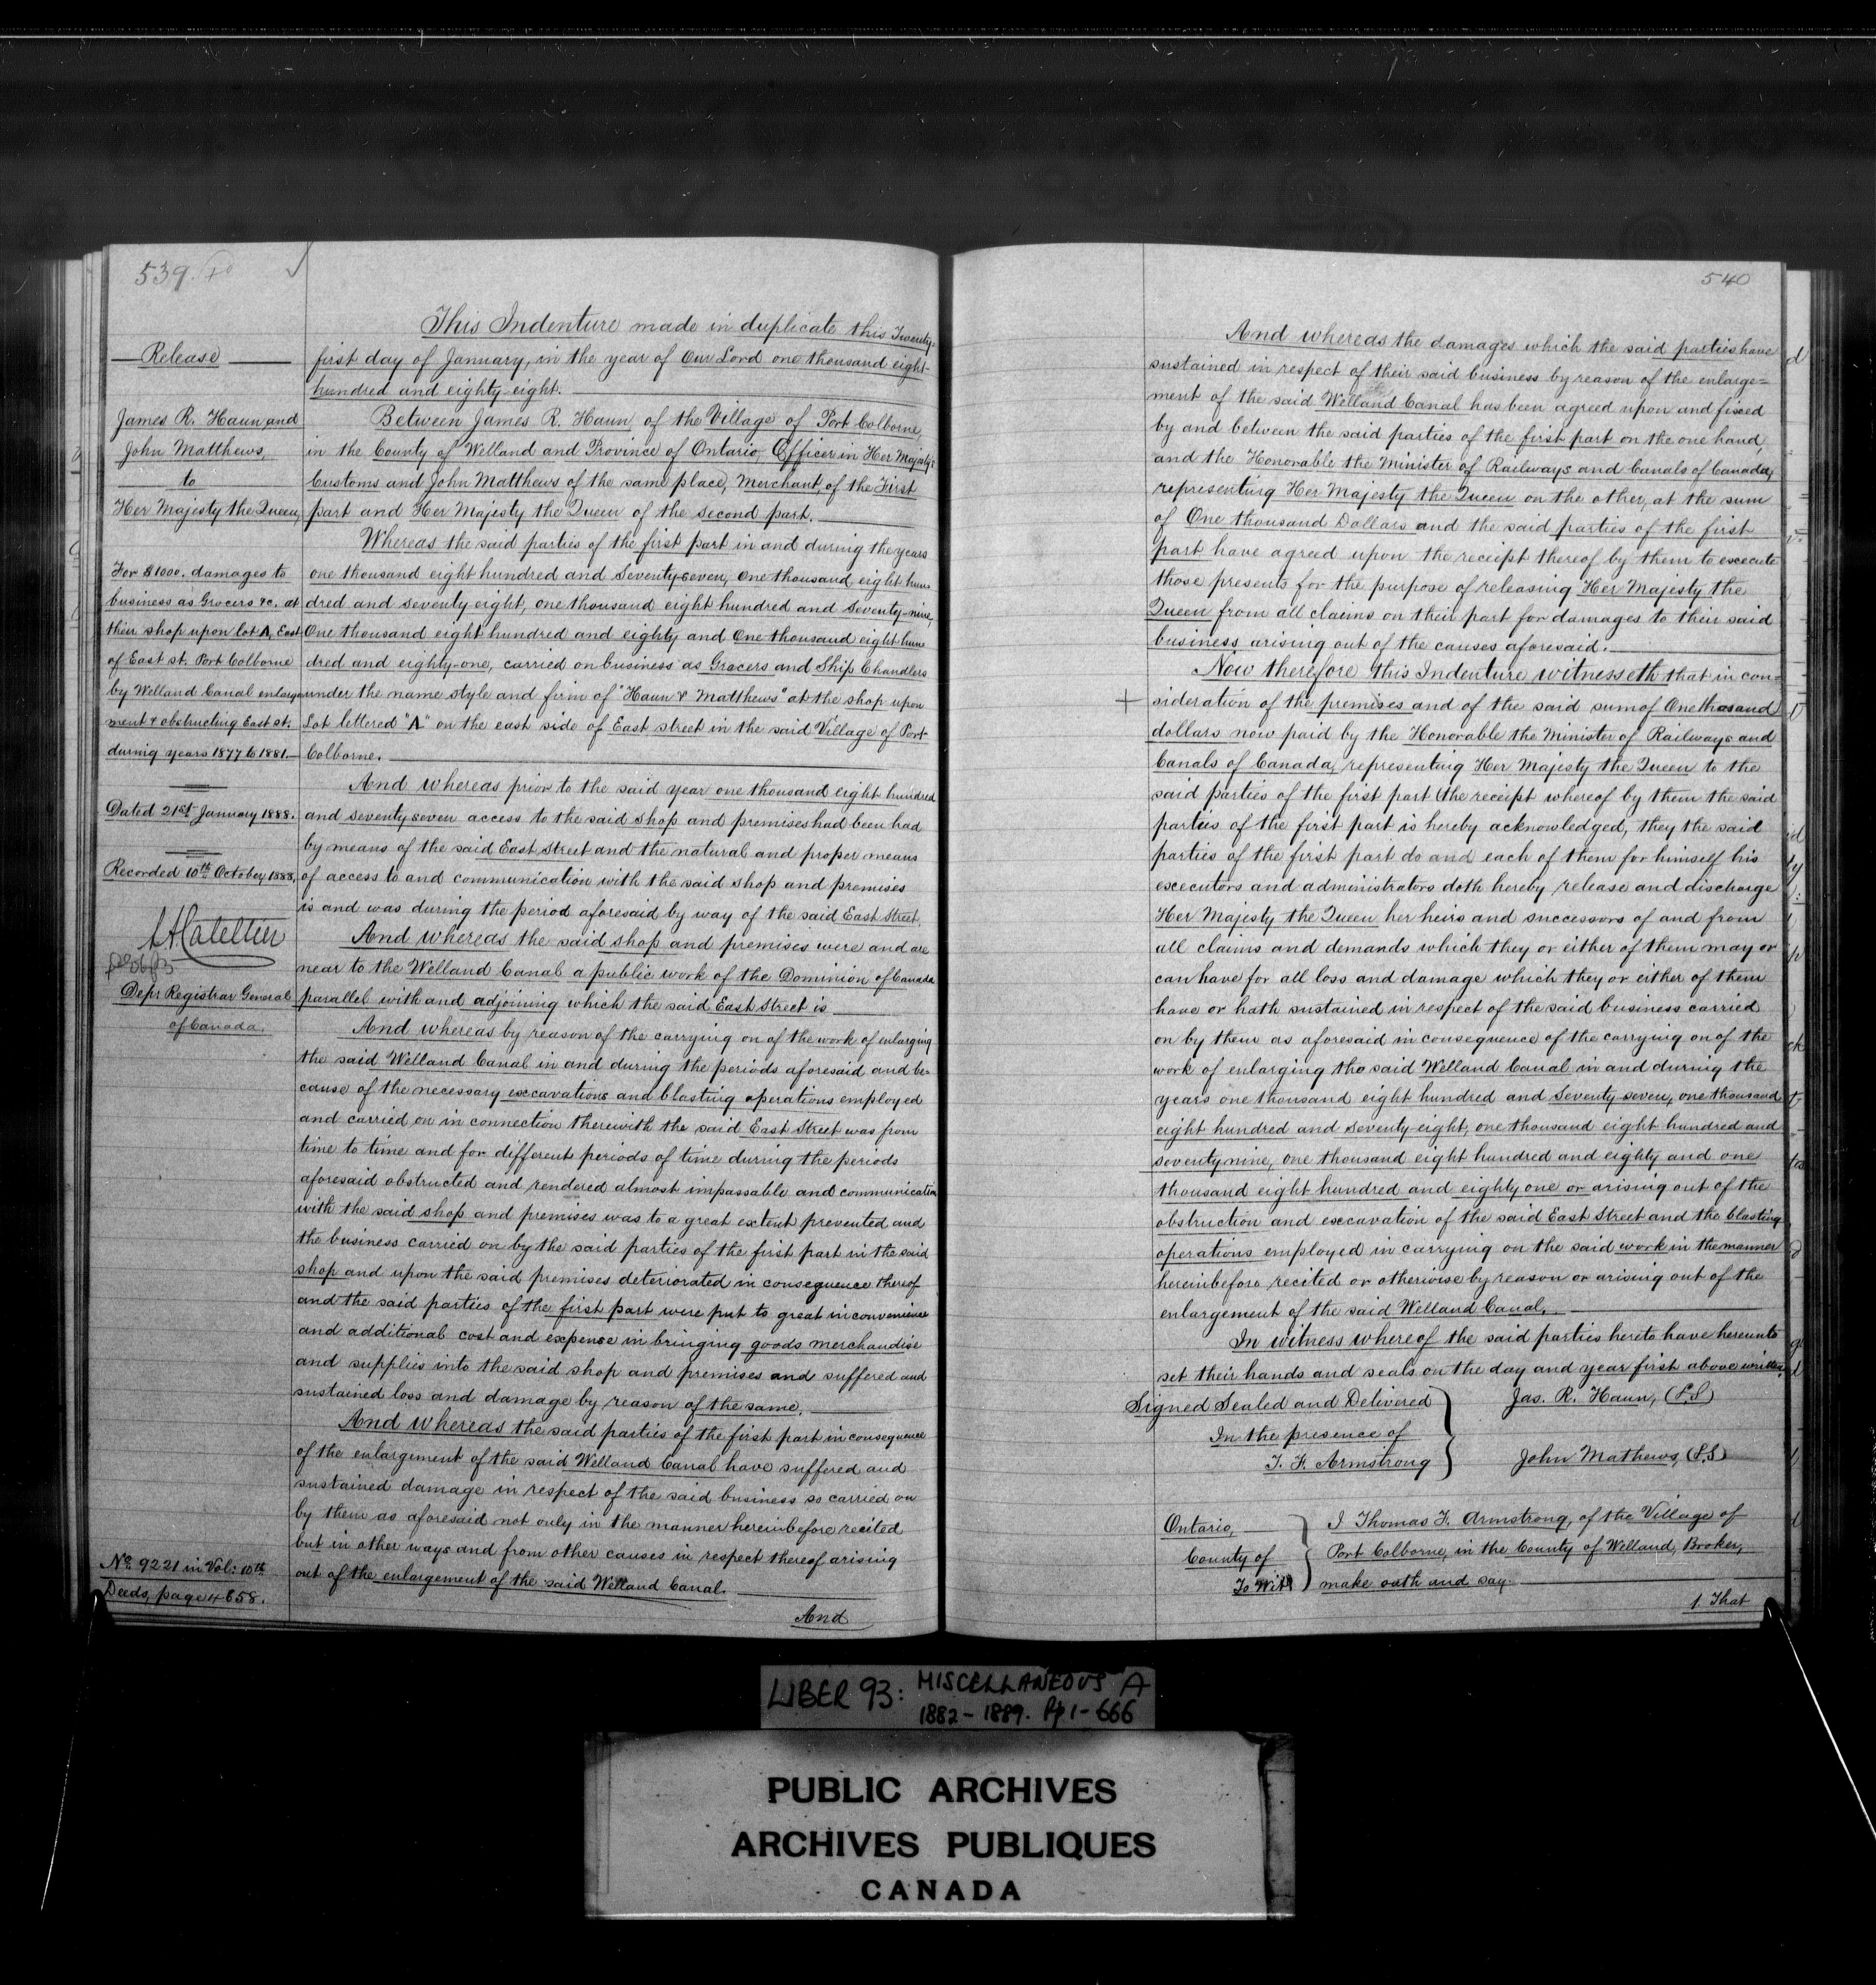 539.
Release
James R. Haun and
John Matthews,
to
Her Majesty the Queen,
For $1000. damages to
business as Grocers &c. at
their shop upon lot A, East
of East st. Port Colborne
by Welland Canal enlarge
ment & obstructing East st.
during years 1877 to 1881.
Dated 21st January 1888.
Recorded 10th October 1888,
Depy Registrar General
of Canada.
No. 9221 in Vol: 10th
Deeds, page 4858.
This Indenture made in duplicate this Twenty-
first day of January, in the year of Our Lord one thousand eight-
hundred and eighty-eight.
Between James R. Haun, of the Village of Port Colborne,
in the County of Welland and Province of Ontario, Officer in Her Majesty's
Customs and John Matthews of the same place, Merchant, of the First
part and Her Majesty the Queen of the second part.
Whereas the said parties of the first part in and during the years
one thousand eight hundred and seventy-seven, One thousand eight hun-
dred and seventy-eight, one thousand eight hundred and seventy-nine,
One thousand eight hundred and eighty and One thousand eight hun
dred and eighty-one, carried on business as Grocers and Ship Chandlers
under the name style and firm of "Haun & Matthews" at the shop upon
Lot lettered "A" on the east side of East street in the said Village of Port
Colborne.
And whereas prior to the said year one thousand eight hundred
and seventy seven access to the said shop and premises had been had
by means of the said East Street and the natural and proper means
of access to and communication with the said shop and premises
is and was during the period aforesaid by way of the said East Street.
And whereas the said shop and premises were and are
near to the Welland Canal a public work of the Dominion of Canada
parallel with and adjoining which the said East Street is
And whereas by reason of the carrying on of the work of enlarging
the said Welland Canal in and during the periods aforesaid and be-
cause of the necessary excavations and blasting operations employed
and carried on in connection therewith the said East Street was from
time to time and for different periods of time during the periods
aforesaid obstructed and rendered almost impassable and communication
with the said shop and premises was to a great extent prevented and
the business carried on by the said parties of the first part in the said
shop and upon the said premises deteriorated in consequence thereof
and the said parties of the first part were put to great inconvenience
and additional cost and expense in bringing goods merchandise
and supplies into the said shop and premises and suffered and
sustained loss and damage by reason of the same.
And whereas the said parties of the first part in consequence
of the enlargement of the said Welland Canal have suffered and
sustained damage in respect of the said business so carried on
by them as aforesaid not only in the manner hereinbefore recited
but in other ways and from other causes in respect thereof arising
out of the enlargement of the said Welland Canal.
And
540
And whereas the damages which the said parties have
sustained in respect of their said business by reason of the enlarge=
ment of the said Welland Canal has been agreed upon and fixed
by and between the said parties of the first part on the one hand,
and the Honorable the Minister of Railways and Canals of Canada,
representing Her Majesty the Queen on the other, at the sum
of One thousand Dollars and the said parties of the first
part have agreed upon the receipt thereof by them to execute
those presents for the purpose of releasing Her Majesty the
Queen from all claims on their part for damages to their said
business arising out of the causes aforesaid.
Now therefore this Indenture witnesseth that in con-
+ sideration of the premises and of the said sum of One thousand
dollars now paid by the Honorable the Minister of Railways and
Canals of Canada, representing Her Majesty the Queen to the
said parties of the first part (the receipt whereof by them the said
parties of the first part is hereby acknowledged, they the said
parties of the first part do and each of them for himself his
executors and administrators doth hereby release and discharge
Her Majesty the Queen her heirs and successors of and from
all claims and demands which they or either of them may or
can have for all loss and damage which they or either of them
have or hath sustained in respect of the said business carried
on by them as aforesaid in consequence of the carrying on of the
work of enlarging the said Welland Canal in and during the
years one thousand eight hundred and seventy-seven, one thousand
eight hundred and seventy-eight, one thousand eight hundred and
seventy nine, one thousand eight hundred and eighty and one
thousand eight hundred and eighty one or arising out of the
obstruction and excavation of the said East Street and the blasting
operations employed in carrying on the said work in the manner
hereinbefore recited or otherwise by reason or arising out of the
enlargement of the said Welland Canal.
In witness whereof the said parties hereto have hereunto
set their hands and seals on the day and year first above written.
Signed Sealed and Delivered
In the presence of
T. F. Armstrong
Jas. R. Haun, (L.S)
John Mathews, (L.S)
Ontario,
County of
To Wit
I Thomas F. Armstrong, of the Village of
Port Colborne, in the County of Welland, Broker,
make oath and say:
1. That
LIBER 93: MISCELLANEOUS A
1882-1889. Pp 1-666
PUBLIC ARCHIVES
ARCHIVES PUBLIQUES
CANADA